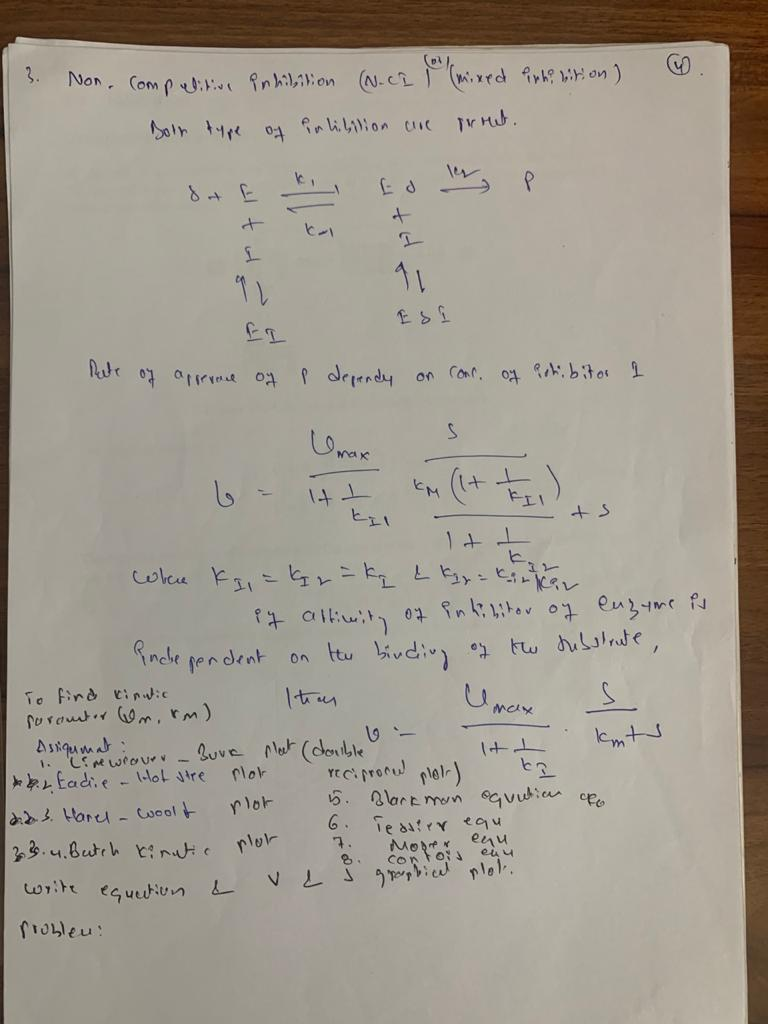 3. Non. Competitive inhibition (N-CI) (or) (mixed inhibition) (4).
Both type of inhibition are
S + E ⇌ ES → P
k1 k2
k-1
+ +
I I
↑↓ ↑↓
EI ESI
Rate of of P depends on Conc. of inhibitor I
v = Vmax / (1 + I/KI1) · S / (KM (1 + I/KI1) / (1 + I/KI2) + S)
where KI1 = KI2 = KI & KI2 =
if affinity of inhibitor of enzyme is
independent on the binding of the substrate,
then v = Vmax / (1 + I/KI) · S / (Km + S)
To find kinetic
parameter (Vm, Km)
Assignment:
1. Lineweaver - Burk plot (double reciprocal plot)
2. Eadie - Hofstee plot
3. Hanes - Woolf plot
4. Batch kinetic plot
5. Blackman equation
6. Tessier equ
7. Moser equ
8. Contois equ
write equation & V & S graphical plot.
Problem: